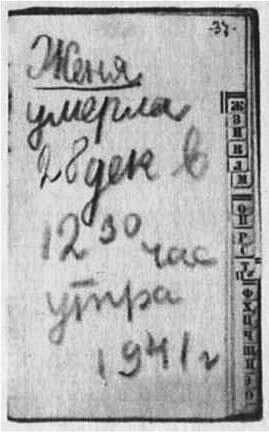 -37-
Женя
умерла
28 дек в
12 30 час
утра
1941 г
Ж
З
И
К
Л
М